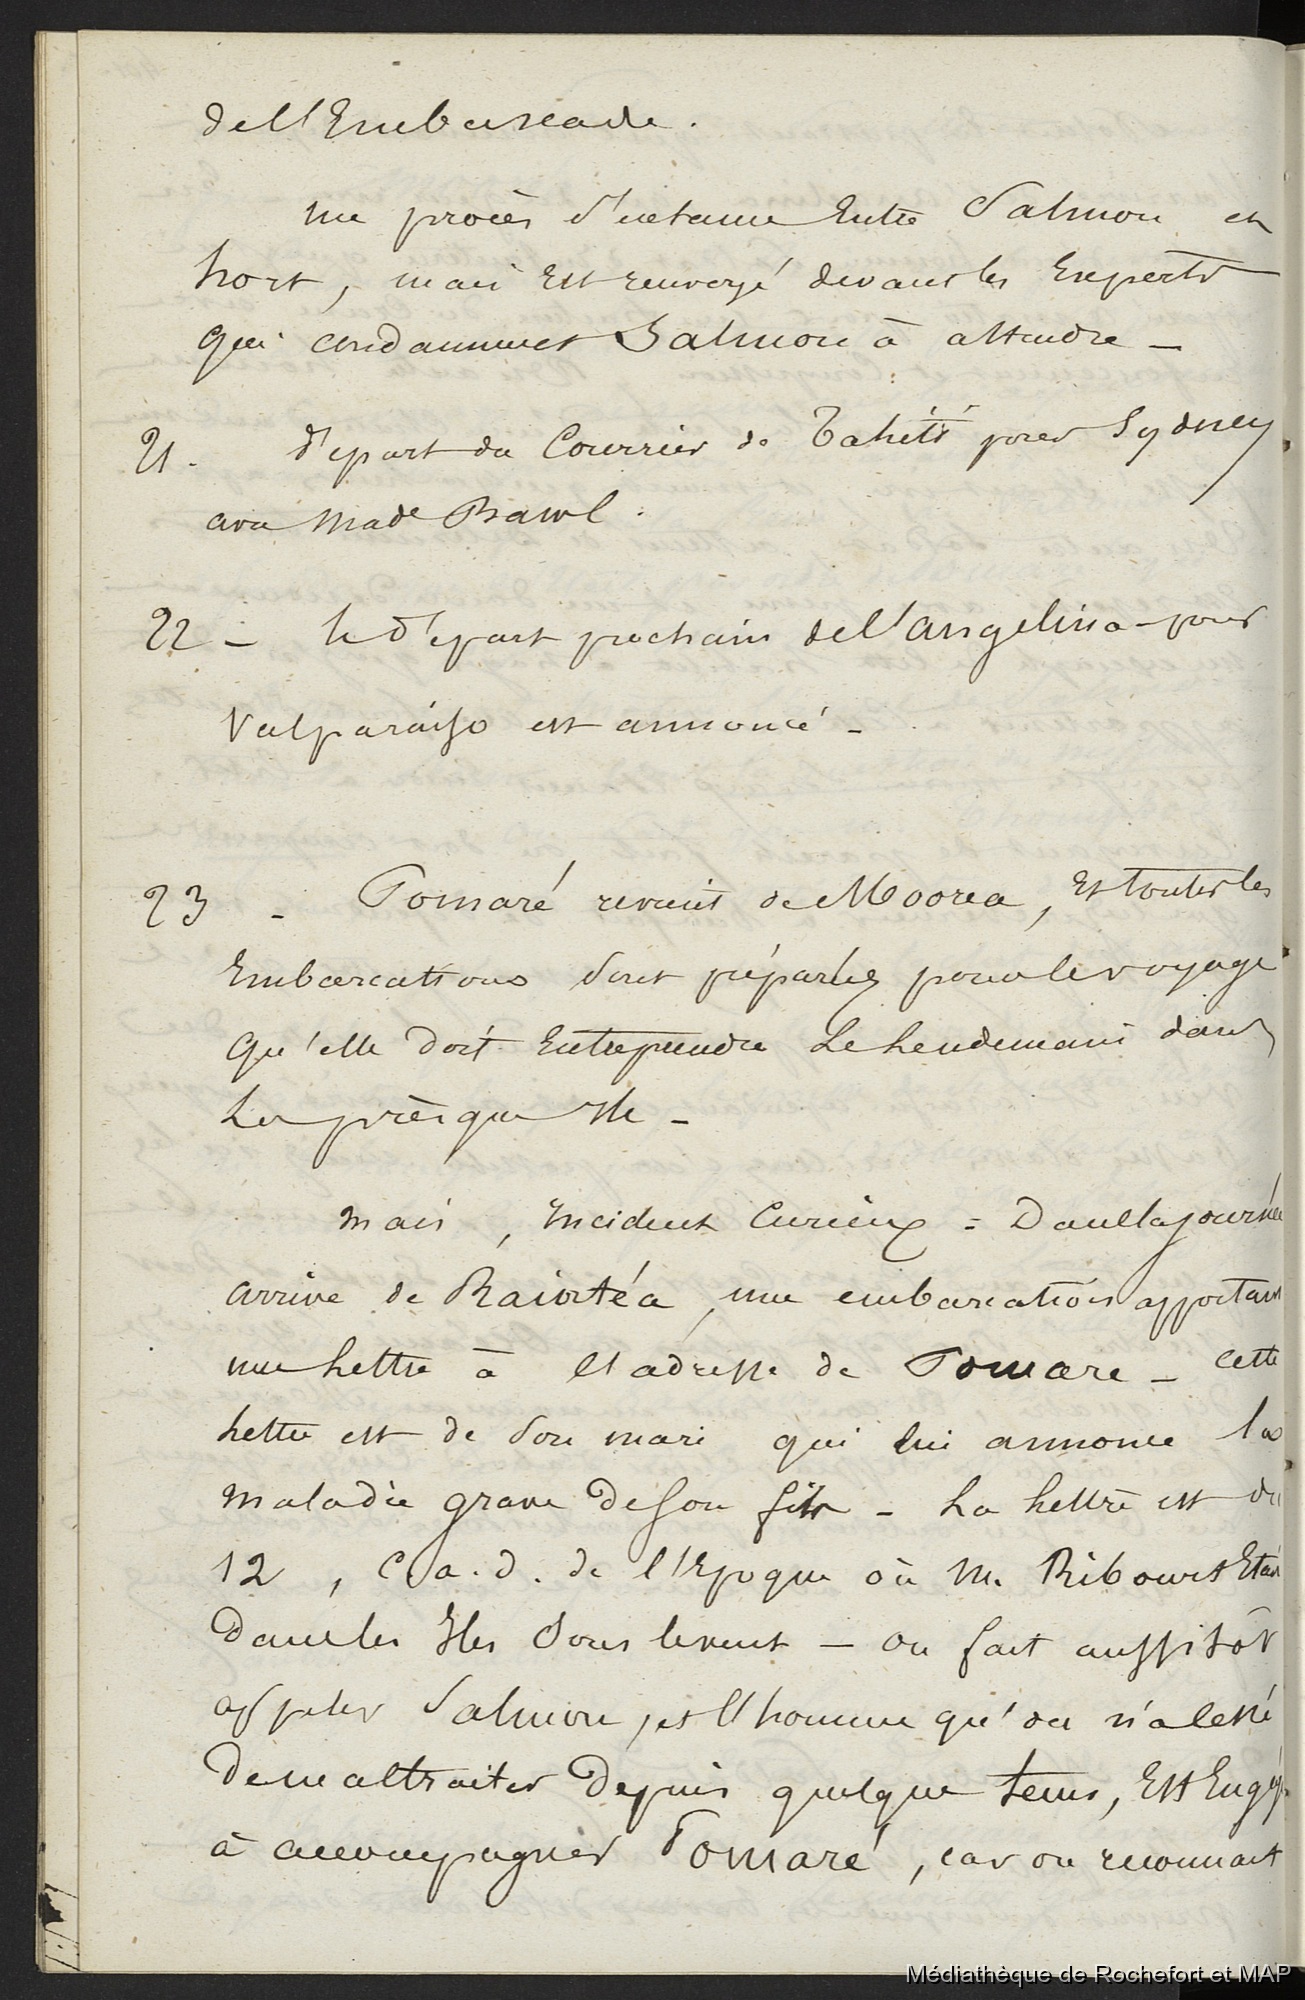 de l'Embuscade.
une procès s'entame Entre Salmon et
hort, mais Est renvoyé devant les Experts
qui condamnent Salmon à attendre _
21. départ du Courrier de Tahiti pour Sydney
avec Made
22 _ le départ prochain de l'angelina pour
Valparaiso est annoncé _
23 _ Pomaré revient de Moorea, Et toutes les
Embarcations sont préparées pour le voyage
qu'elle doit Entreprendre Le Lendemain dans
La près qu Ile _
mais, Incident Curieux = Dans la journée
arrive de Raiatéa, une embarcation apportant
une Lettre à l'adresse de Pomare _ cette
Lettre est de son mari qui lui annonce la
maladie grave de son fils _ La Lettre est du
12, C. a. d. de l'Epoque où M. Ribourt Etait
Dans les Iles Sous le vent _ on fait aussitôt
appeler Salmon, et l'homme qu'on n'a cessé
De maltraiter Depuis quelque tems, Est Engagé
à accompagner Pomaré, car on reconnait
Médiathèque de Rochefort et MAP